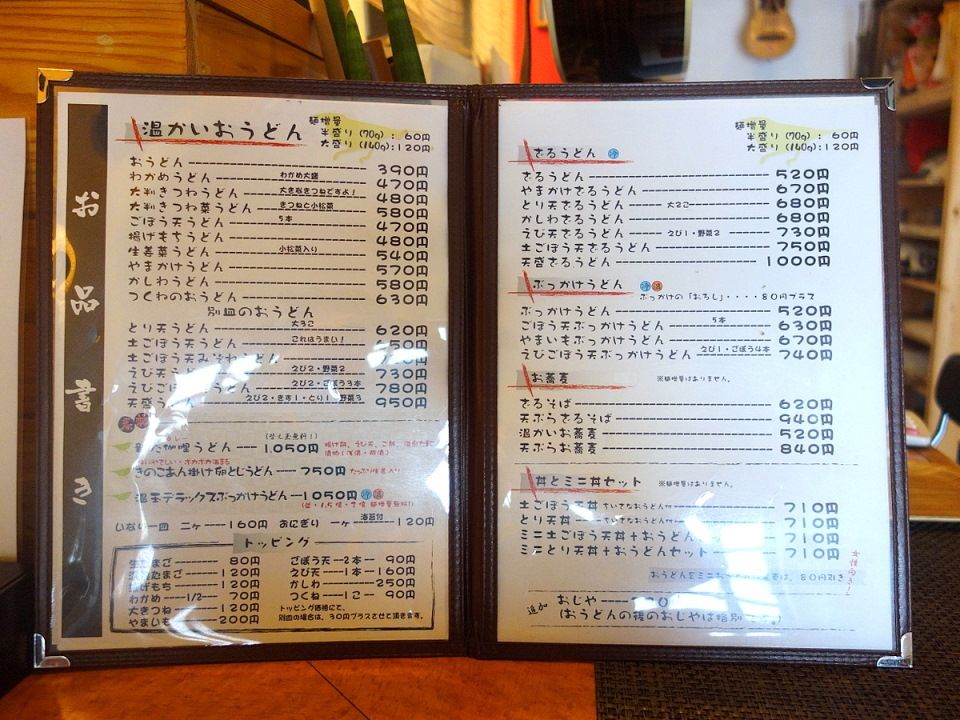 お品書き
温かいおうどん
麺増量
半盛り (70g) : 60円
大盛り (140g):120円
おうどん 390円
わかめうどん わかめ大盛 470円
大判きつねうどん 大きなきつねですよ! 480円
大判きつね菜うどん きつねと小松菜 580円
ごぼう天うどん 5本 470円
揚げもちうどん 480円
生姜菜うどん 小松菜入り 540円
やまかけうどん 570円
かしわうどん 580円
つくわのおうどん 630円
別皿のおうどん
とり天うどん 大3こ 620円
土ごぼう天うどん これはうまい! 50円
土ごぼう天みぞれうどん
えび天うどん えび2・野菜2 730円
えびごぼう うどん えび2・ごぼう3本 780円
天盛うどん えび2・きす1・とり1・野菜3 950円
咖喱うどん 1,050円
きのこあん掛け卵とじうどん 750円
温玉デラックスぶっかけうどん 1050円
いなり一皿 二ヶ 160円 おにぎり 一ヶ 海苔付 120円
トッピング
生たまご 80円 ごぼう天 2本 90円
たまご 120円 えび天 1本 160円
揚げもち 120円 かしわ 250円
わかめ 1/2 70円 つくね 1こ 90円
大きつね 120円 トッピング価格にて、
やまいも 200円 別皿の場合は、30円プラスさせて頂きます。
麺増量
半盛り (70g) : 60円
大盛り (140g):120円
ざるうどん 冷
ざるうどん 520円
やまかけざるうどん 670円
とり天ざるうどん 大2こ 680円
かしわざるうどん 680円
えび天ざるうどん えび1・野菜2 730円
土ごぼう天ざるうどん 750円
天盛ざるうどん 1000円
ぶっかけうどん 冷 温
ぶっかけの「おろし」・・・・80円プラス
ぶっかけうどん 520円
ごぼう天ぶっかけうどん 5本 630円
やまいもぶっかけうどん 670円
えびごぼう天ぶっかけうどん えび1・ごぼう4本 740円
お蕎麦 ※麺増量はありません。
ざるそば 620円
天ぷらざるそば 940円
温かいお蕎麦 520円
天ぷらお蕎麦 840円
丼とミニ丼セット ※麺増量はありません。
土ごぼう天丼 ちいさなおうどん付 710円
とり天丼 ちいさなおうどん付 710円
ミニ土ごぼう天丼+おうどん 710円
ミニとり天丼+おうどんセット 710円
おうどんをミニお は、80円引き
追加 おじや
(おうどんの後のおじやは格別